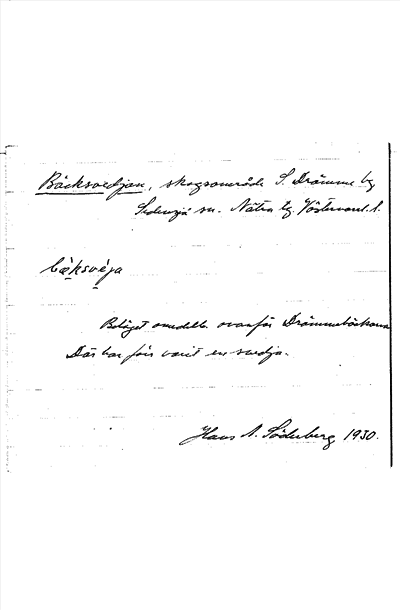 Bäcksvedjan, skogsområde S. Drömme by
Sidensjö sn. Nätra tg. Västernorrl. l.
bæksvéja
Beläget omedelb. ovanför Drömmebäckarna
Där har förr varit en svedja.
Hans A. Söderberg 1930.